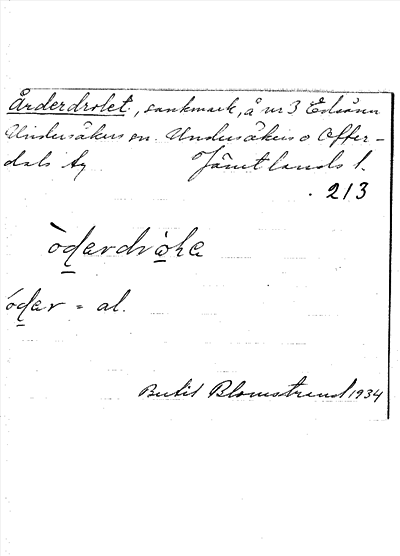 Årderdrolet, sankmark, å nr 3 Edsåsen
Undersåkers sn. Undersåkers o Offer-
dals tg Jämtlands l.
213
òdardròka
óder = al.
Bertil Blomstrand 1934